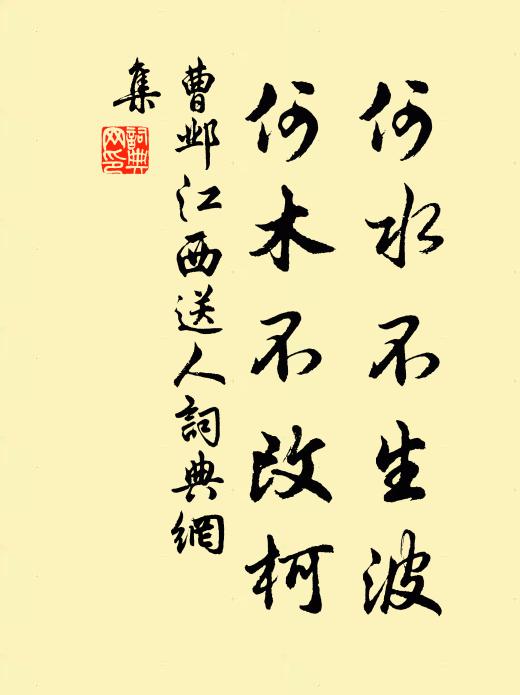 何水不生波
何木不改柯
曹邺江西送人詞典網
集
詞典
网印